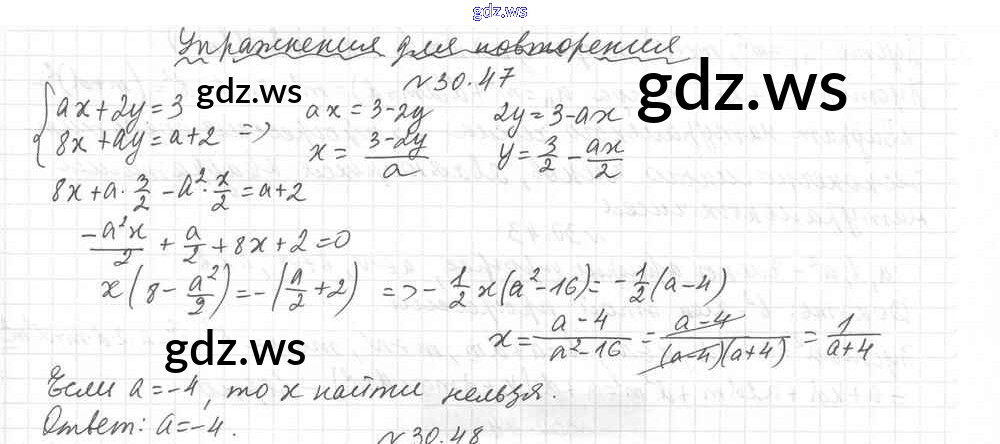 gdz.ws
Упражнения для повторения
№30.47
{ax+2y=3 gdz.ws ax=3-2y 2y=3-ax gdz.ws
8x+ay=a+2 => x=(3-2y)/a y=3/2-ax/2
8x+a·3/2-a²·x/2=a+2
-a²x/2+a/2+8x+2=0
x(8-a²/2)=-(a/2+2) => -1/2x(a²-16)=-1/2(a-4)
gdz.ws x=(a-4)/(a²-16)=(a-4)/((a-4)(a+4))=1/(a+4)
Если a=-4, то x найти нельзя.
Ответ: a=-4.
№30.48